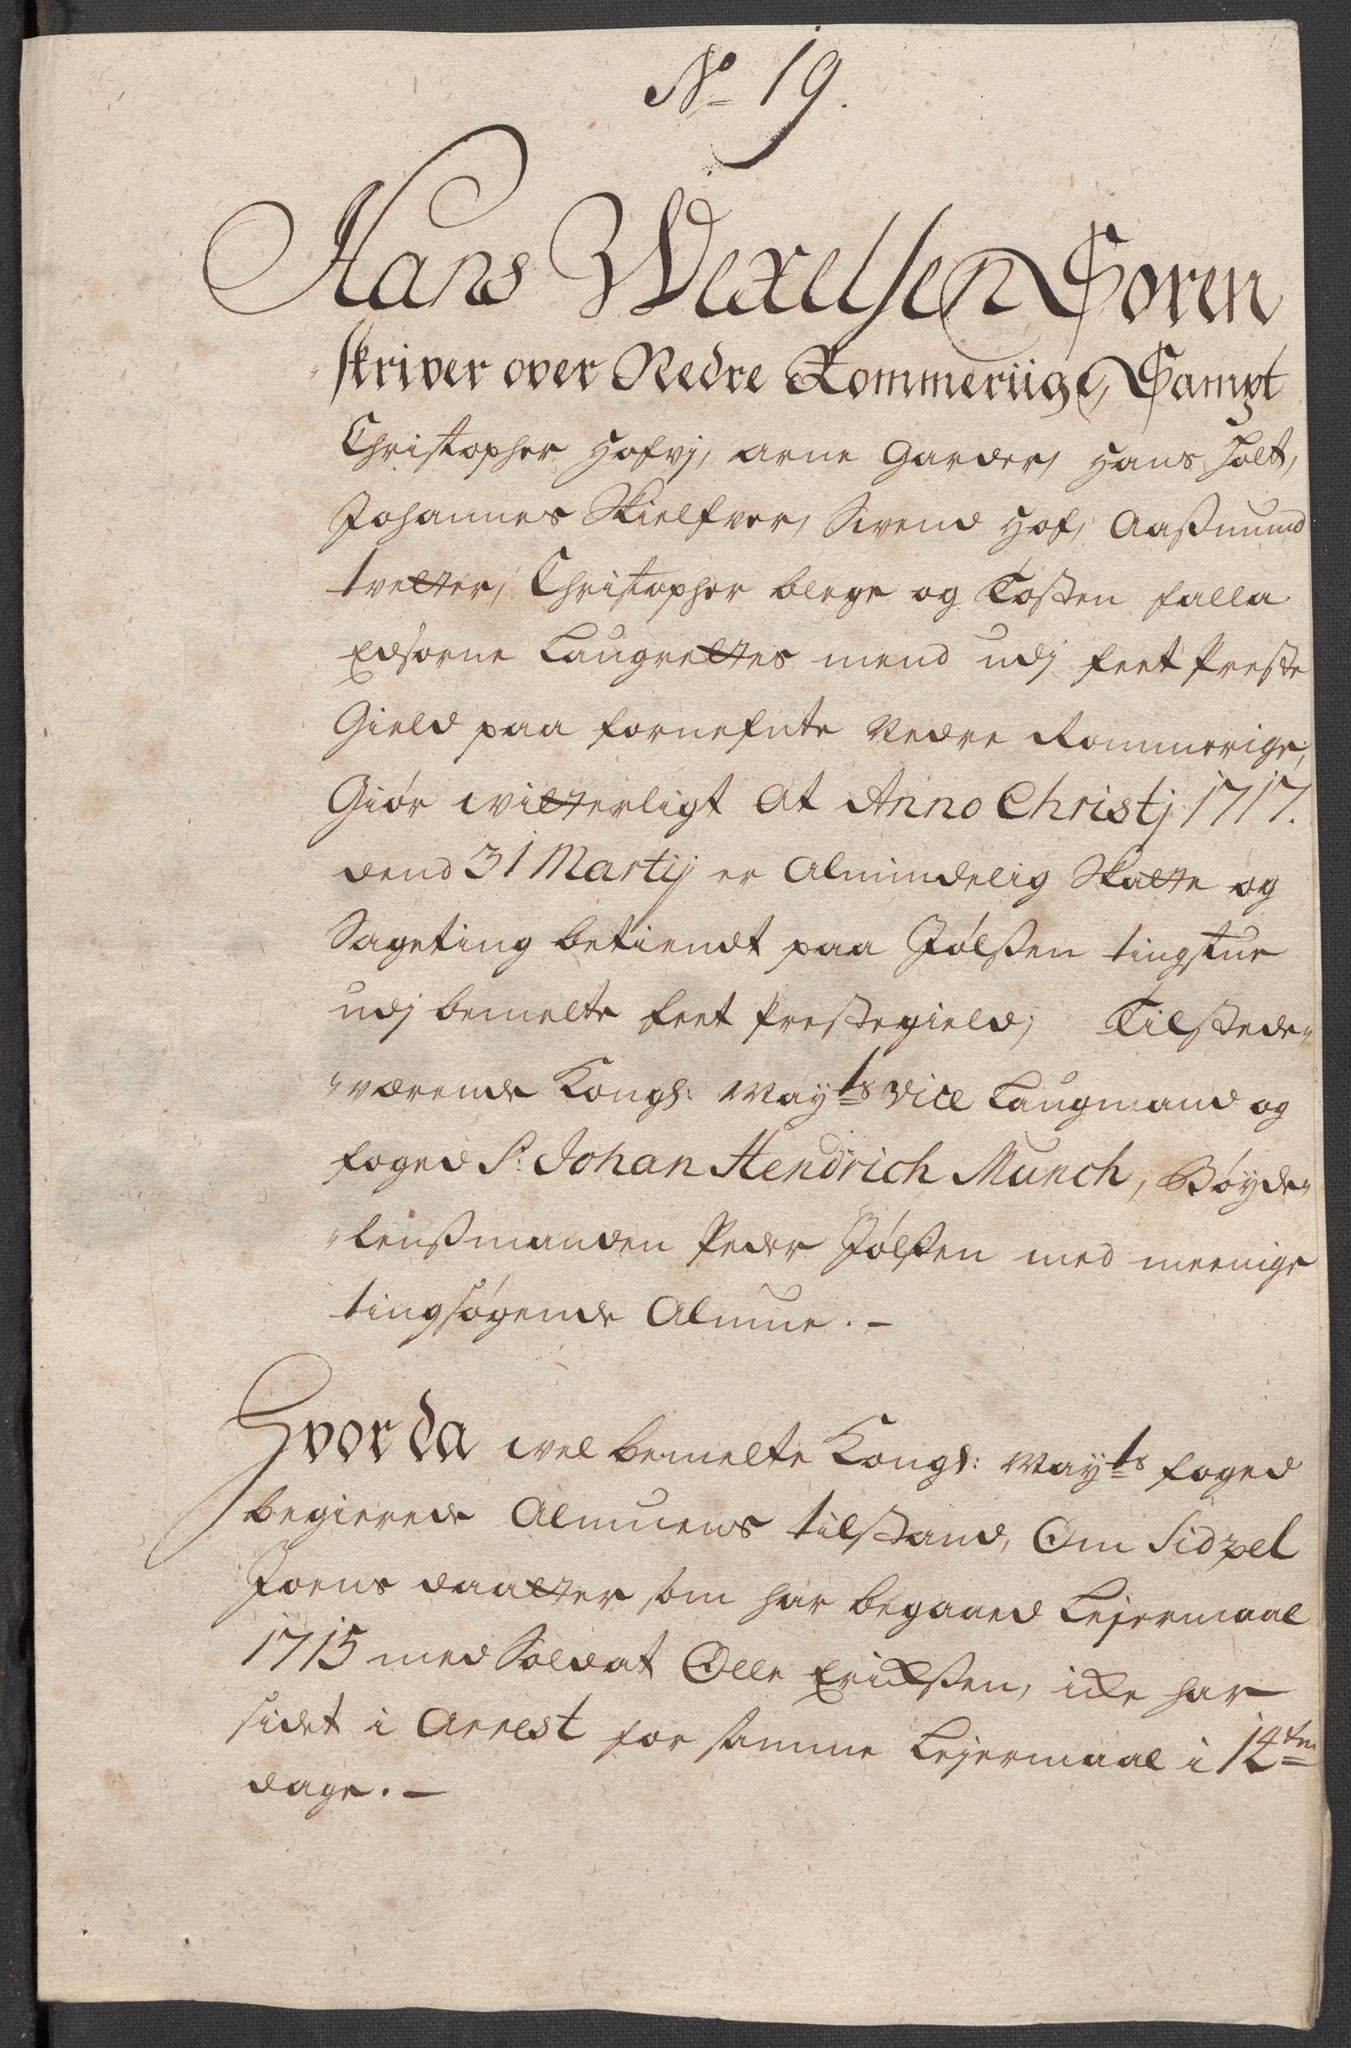 No 19.
Hans Wexelsen Soren
skriver over Nedre Rommeriige, Sampt
Christopher Hofvj, arne Garder, Hans Holt,
Johannes Skielfver, Svend Hof, Aaßmund
tvetter, Christopher blege og Tosten falla
Edsorne Laugrettes mend udj feet Preste
Gield paa fornefnte Nedre Rommerige,
Giör witterligt At Anno Christj 1717.
dend 31 Martij er Almindelig Skatte og
Sageting betiendt paa Jölsten tingstue
udj bemelte feet Prestegield; Tilstede„
„værende Kongl: Mayts vice Laugmand og
foged Sr: Johan Hendrich Munch, Böyde„
„lensßmanden Peder Jölsten med meenige
tingsögende Almue. –
Hvor da wel bemelte Kongl: Mayts foged
begierede Almuens tilstand, Om Sidzel
Joens daatter som har begaaed Lejermaal
1715 med Soldat Olle Erickßen, icke har
sidet i Arrest for samme Lejermaal i 14ten
dage. –